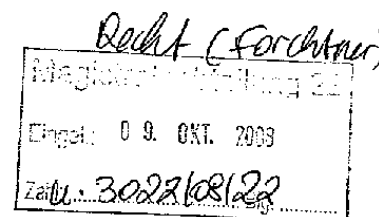 Recht (Forchtner)
Magistratsabteilung 22
Eingel.: 09. OKT. 2008
Zahl: u. 3022/08/22 Blg.